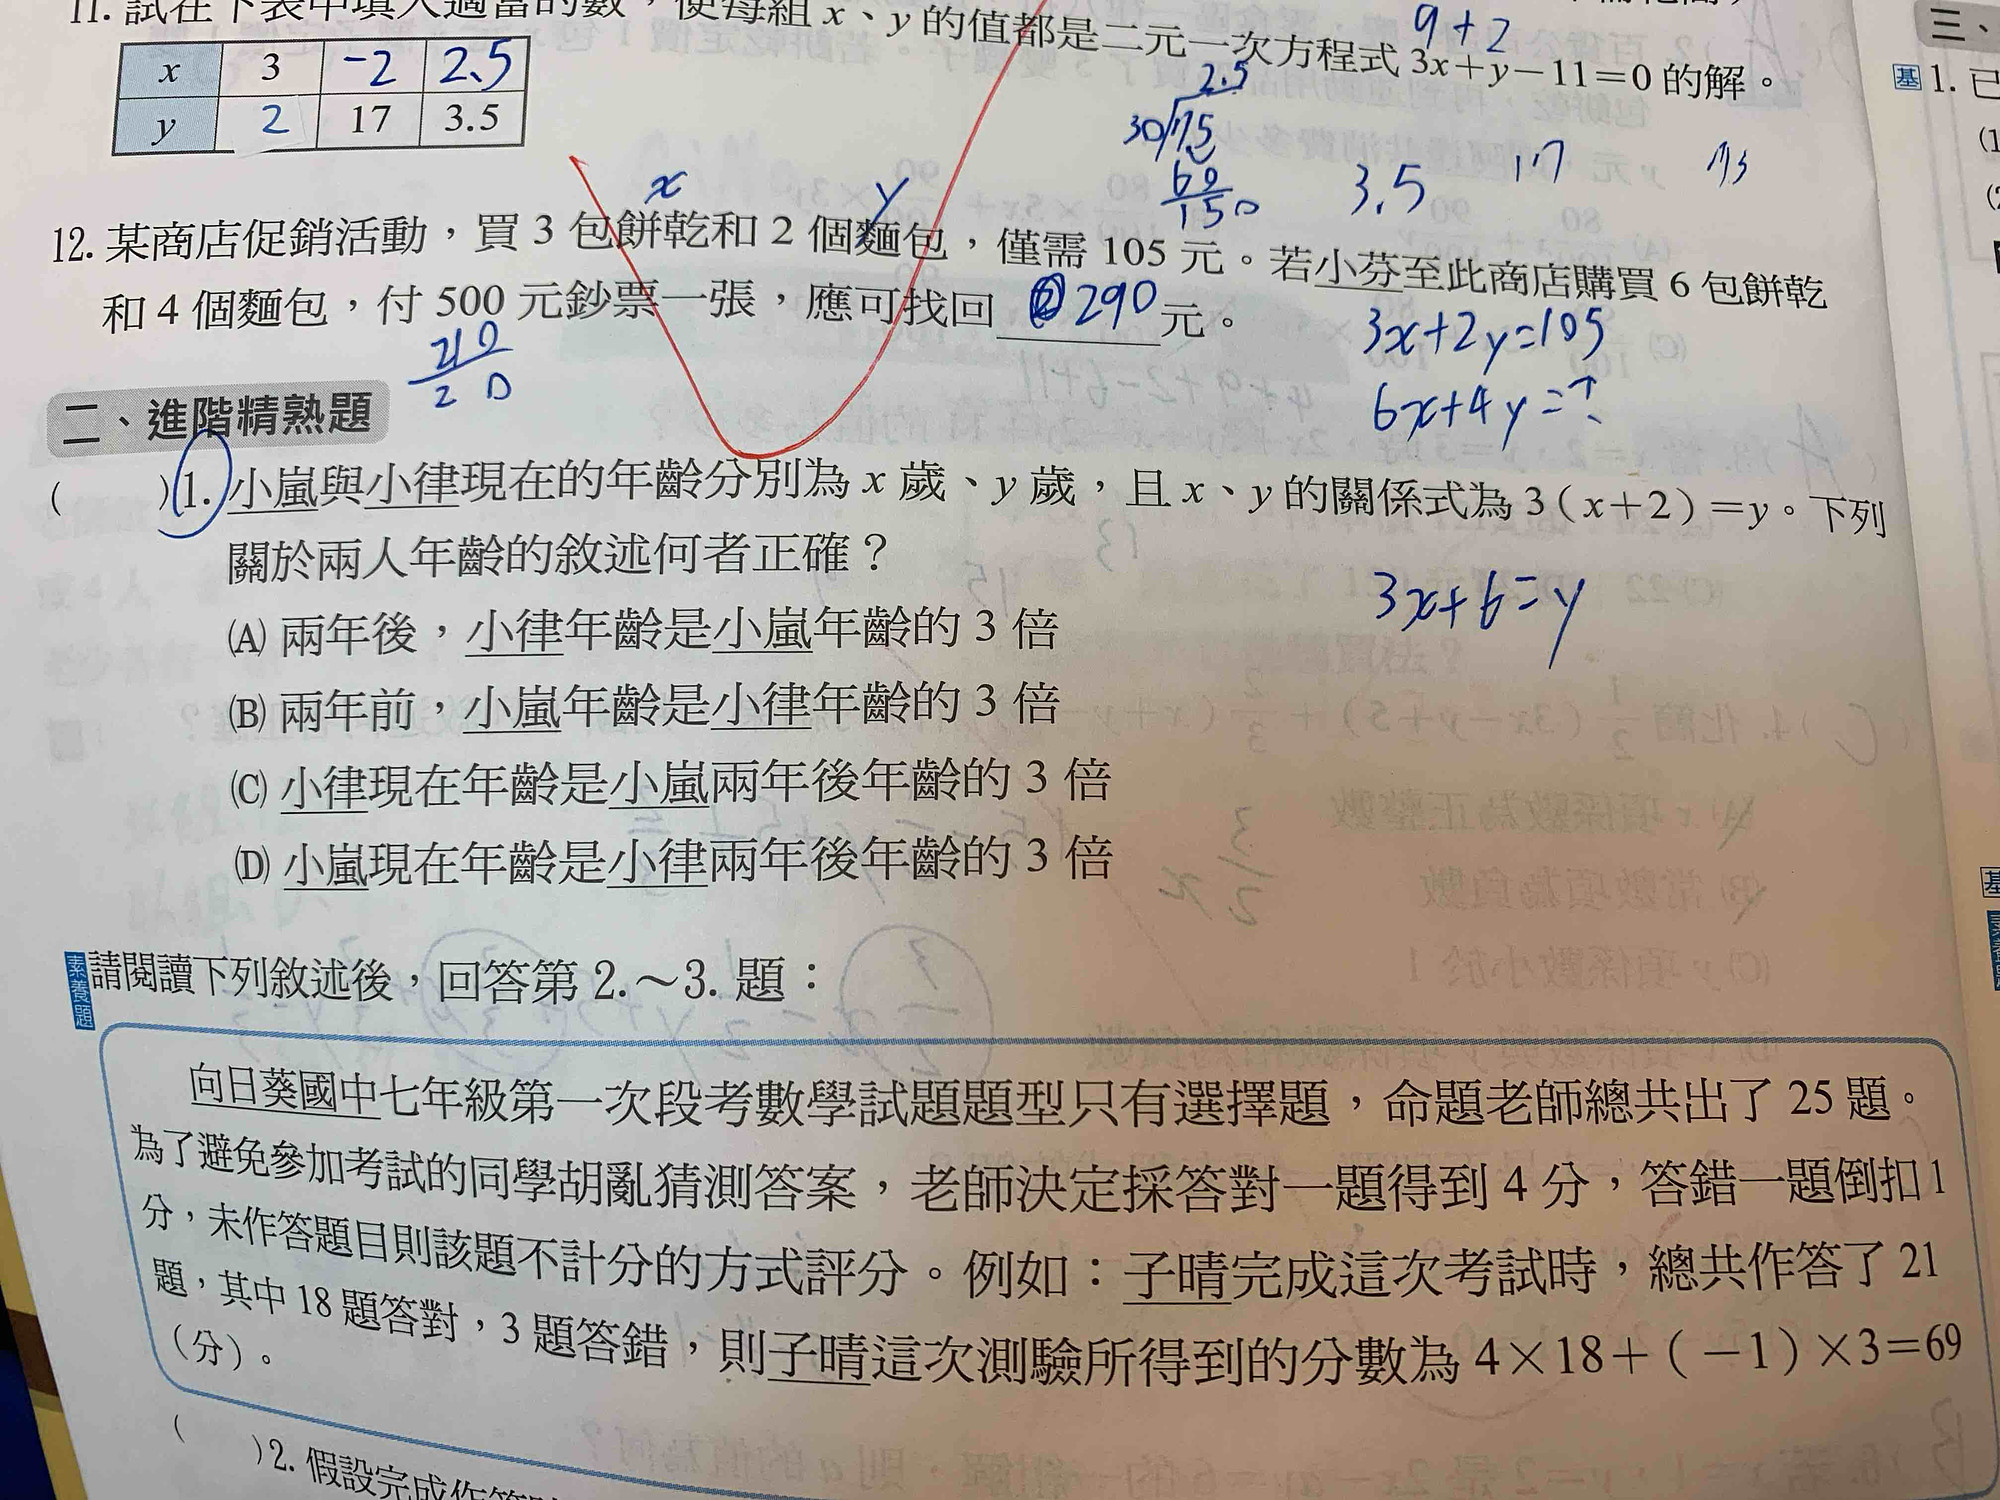 11. 試在下表中填入適當的數，使每組 x、y 的值都是二元一次方程式 3x＋y－11＝0 的解。
9+2
x 3 -2 2.5
y 2 17 3.5
2.5
30 75
60
150
3.5
17
x y
12. 某商店促銷活動，買 3 包餅乾和 2 個麵包，僅需 105 元。若小芬至此商店購買 6 包餅乾
和 4 個麵包，付 500 元鈔票一張，應可找回 290 元。
210
2 0
3x+2y=105
6x+4y=?
二、進階精熟題
( )1. 小嵐與小律現在的年齡分別為 x 歲、y 歲，且 x、y 的關係式為 3（x＋2）＝y。下列
關於兩人年齡的敘述何者正確？
3x+6=y
(A) 兩年後，小律年齡是小嵐年齡的 3 倍
(B) 兩年前，小嵐年齡是小律年齡的 3 倍
(C) 小律現在年齡是小嵐兩年後年齡的 3 倍
(D) 小嵐現在年齡是小律兩年後年齡的 3 倍
素養題 請閱讀下列敘述後，回答第 2.～3. 題：
向日葵國中七年級第一次段考數學試題題型只有選擇題，命題老師總共出了 25 題。
為了避免參加考試的同學胡亂猜測答案，老師決定採答對一題得到 4 分，答錯一題倒扣 1
分，未作答題目則該題不計分的方式評分。例如：子晴完成這次考試時，總共作答了 21
題，其中 18 題答對，3 題答錯，則子晴這次測驗所得到的分數為 4×18＋（－1）×3＝69
（分）。
( )2. 假設完成作答
三、
基 1. 已
(1
(2
基